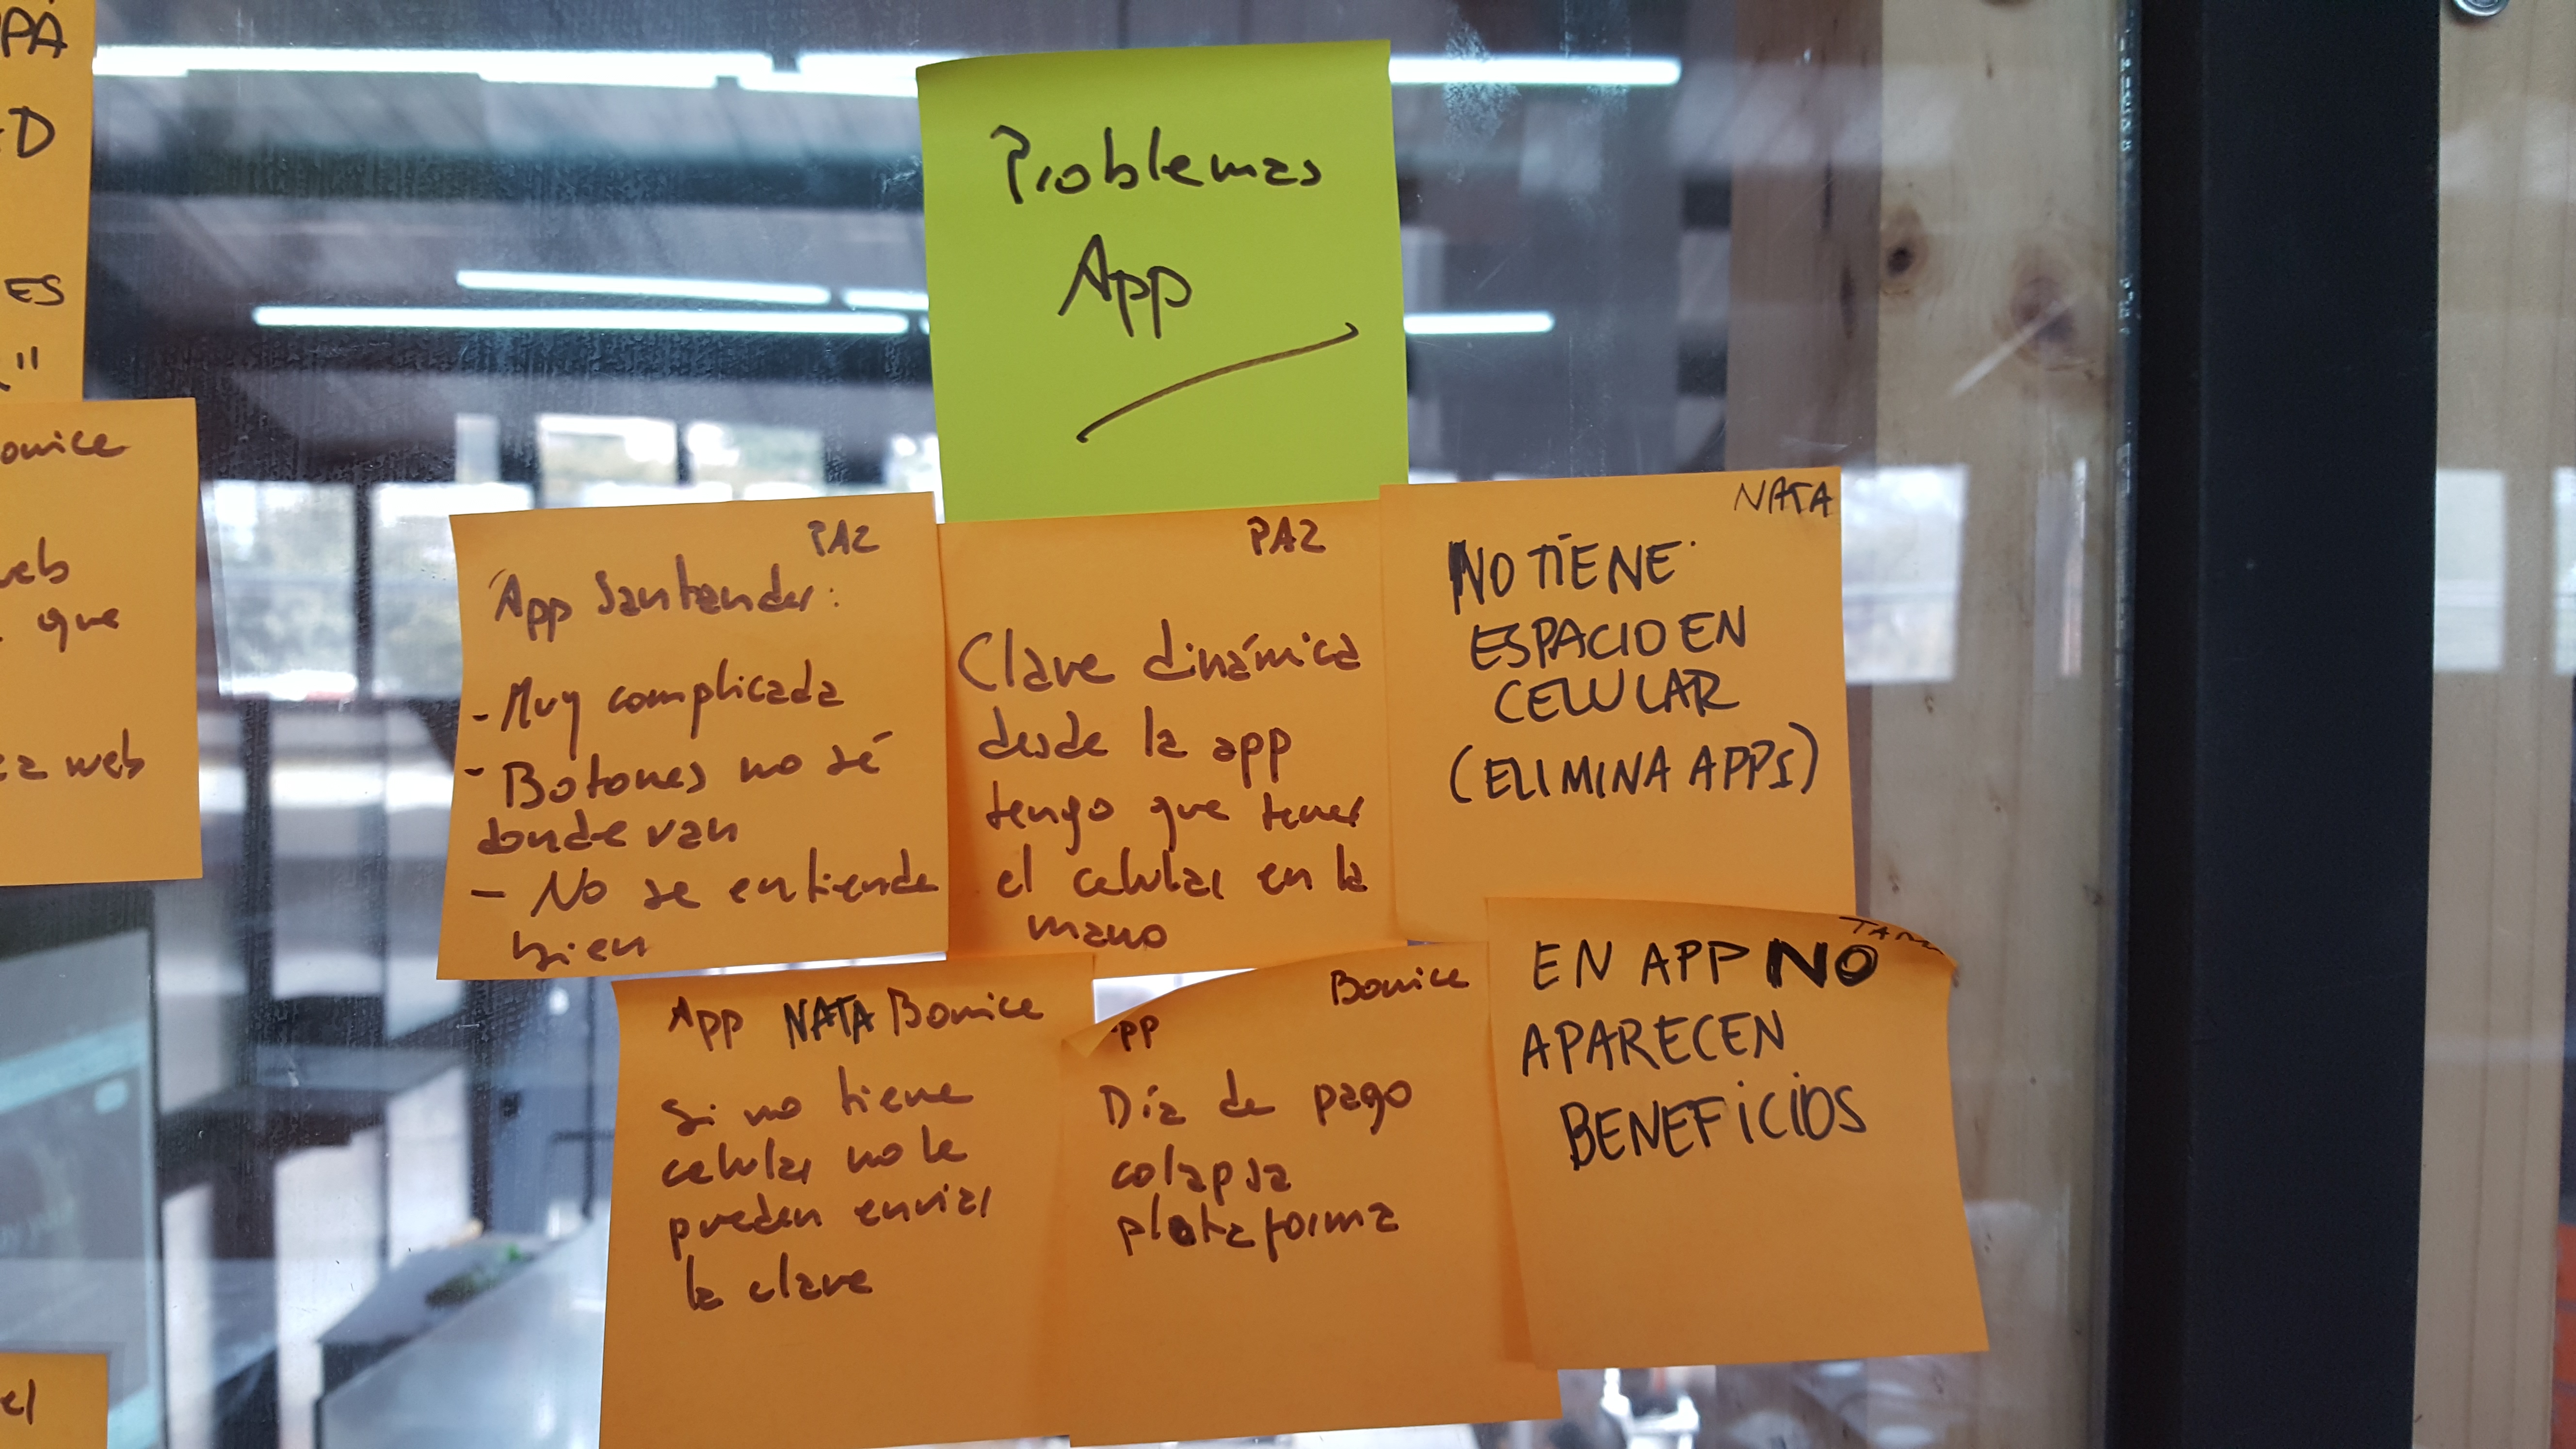 PA
D
ES
"
onice
web
que
web
el
Problemas
App
PAZ
App Santander:
- Muy complicada
- Botones no sé
donde van
- No se entiende
bien
PAZ
Clave dinámica
desde la app
tengo que tener
el celular en la
mano
NATA
NO TIENE
ESPACIO EN
CELULAR
(ELIMINA APPS)
App NATA Bonice
Si no tiene
celular no le
pueden enviar
la clave
Bonice
PP
Día de pago
colapsa
plataforma
TAM
EN APP NO
APARECEN
BENEFICIOS